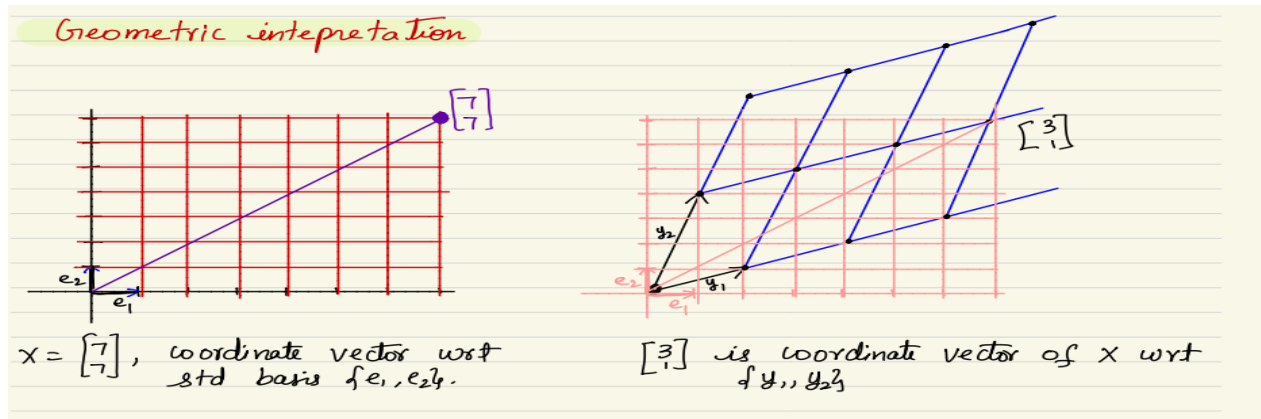 Geometric intepretation
[7 7]
e2
e1
y2
y1
e2
e1
[3 1]
x = [7 7], coordinate vector wrt
std basis {e1, e2}.
[3 1] is coordinate vector of x wrt
{y1, y2}